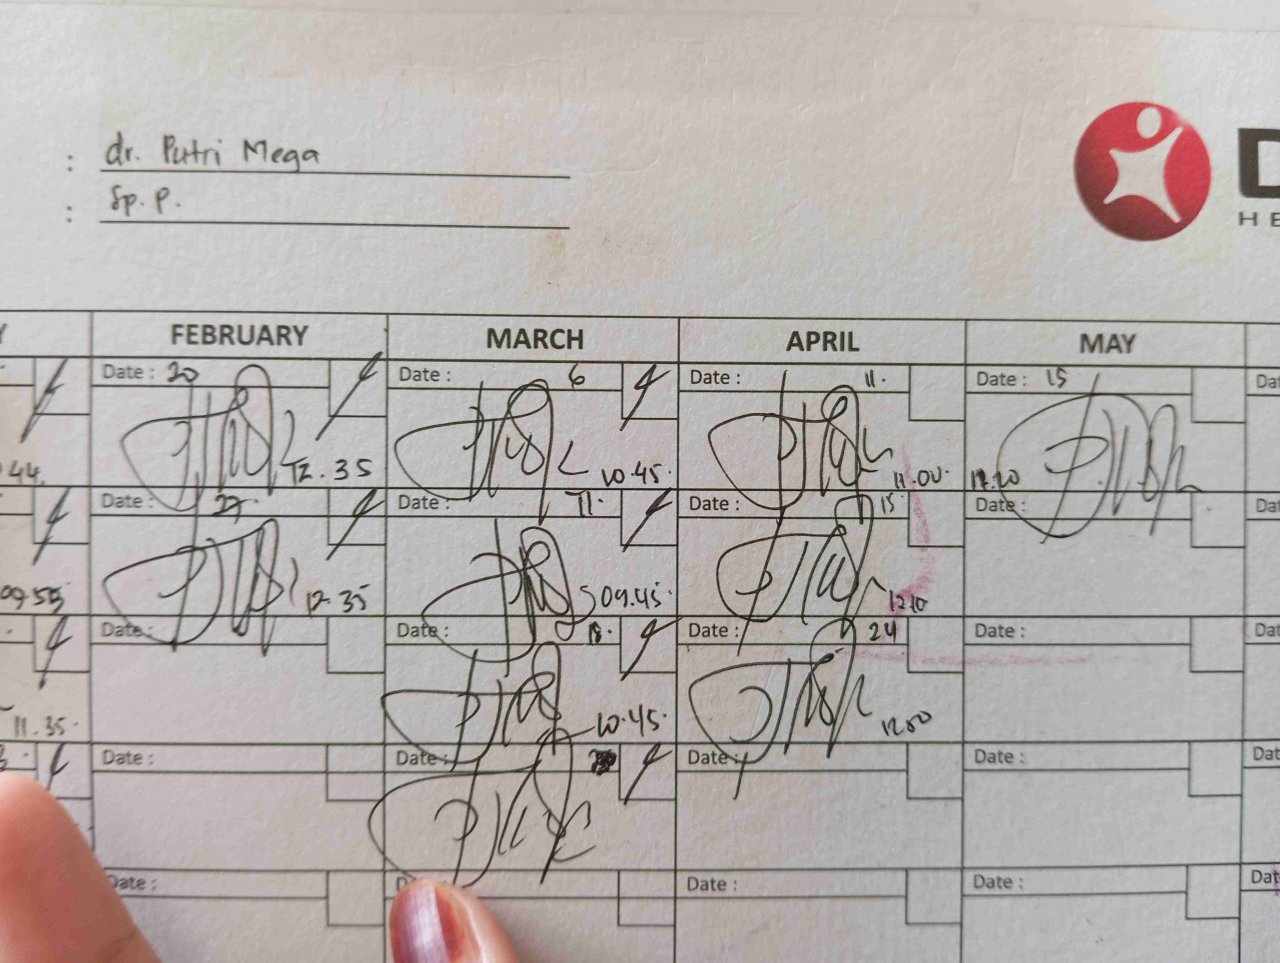 : dr. Putri Mega
: Sp. P.
D
HE
Y FEBRUARY MARCH APRIL MAY
Date : 20 Date : 6 Date : 11. Date : 15 Dat
.44. 12.35 10.45. 11.00. 12.20
Date : 27 Date : 11. Date : 15 Date : Dat
09.55 12.35 09.45. 12.10
Date : Date : 18. Date : 24 Date : Dat
11.35. 10.45. 12.00
Date : Date : Date : Date : Dat
Date : D Date : Date : Dat